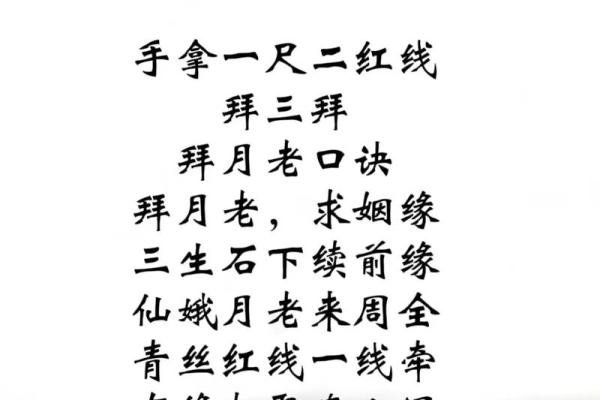 手拿一尺二红线
拜三拜
拜月老口诀
拜月老，求姻缘
三生石下续前缘
仙娥月老来周全
青丝红线一线牵